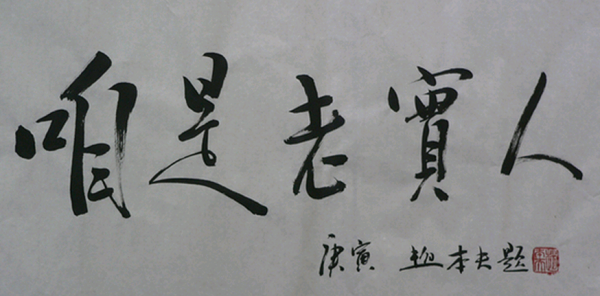 咱是老實人
庚寅 赵本夫题